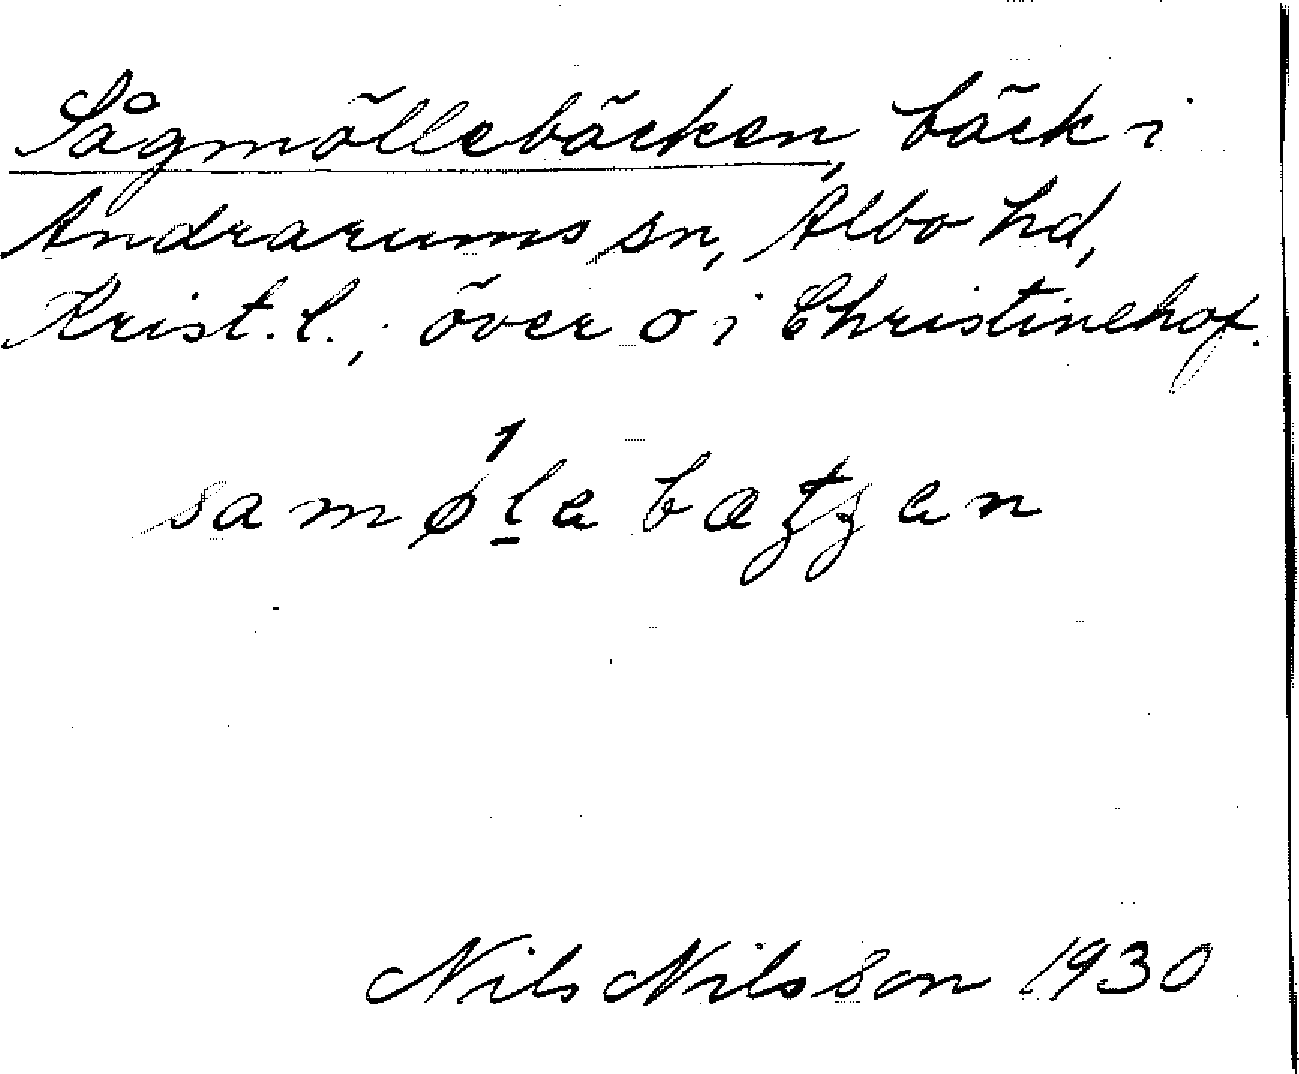 Sågmöllebäcken, bäck i
Andrarums sn, Albo hd,
Krist. l., över o i Christinehof.
Nils Nilsson 1930